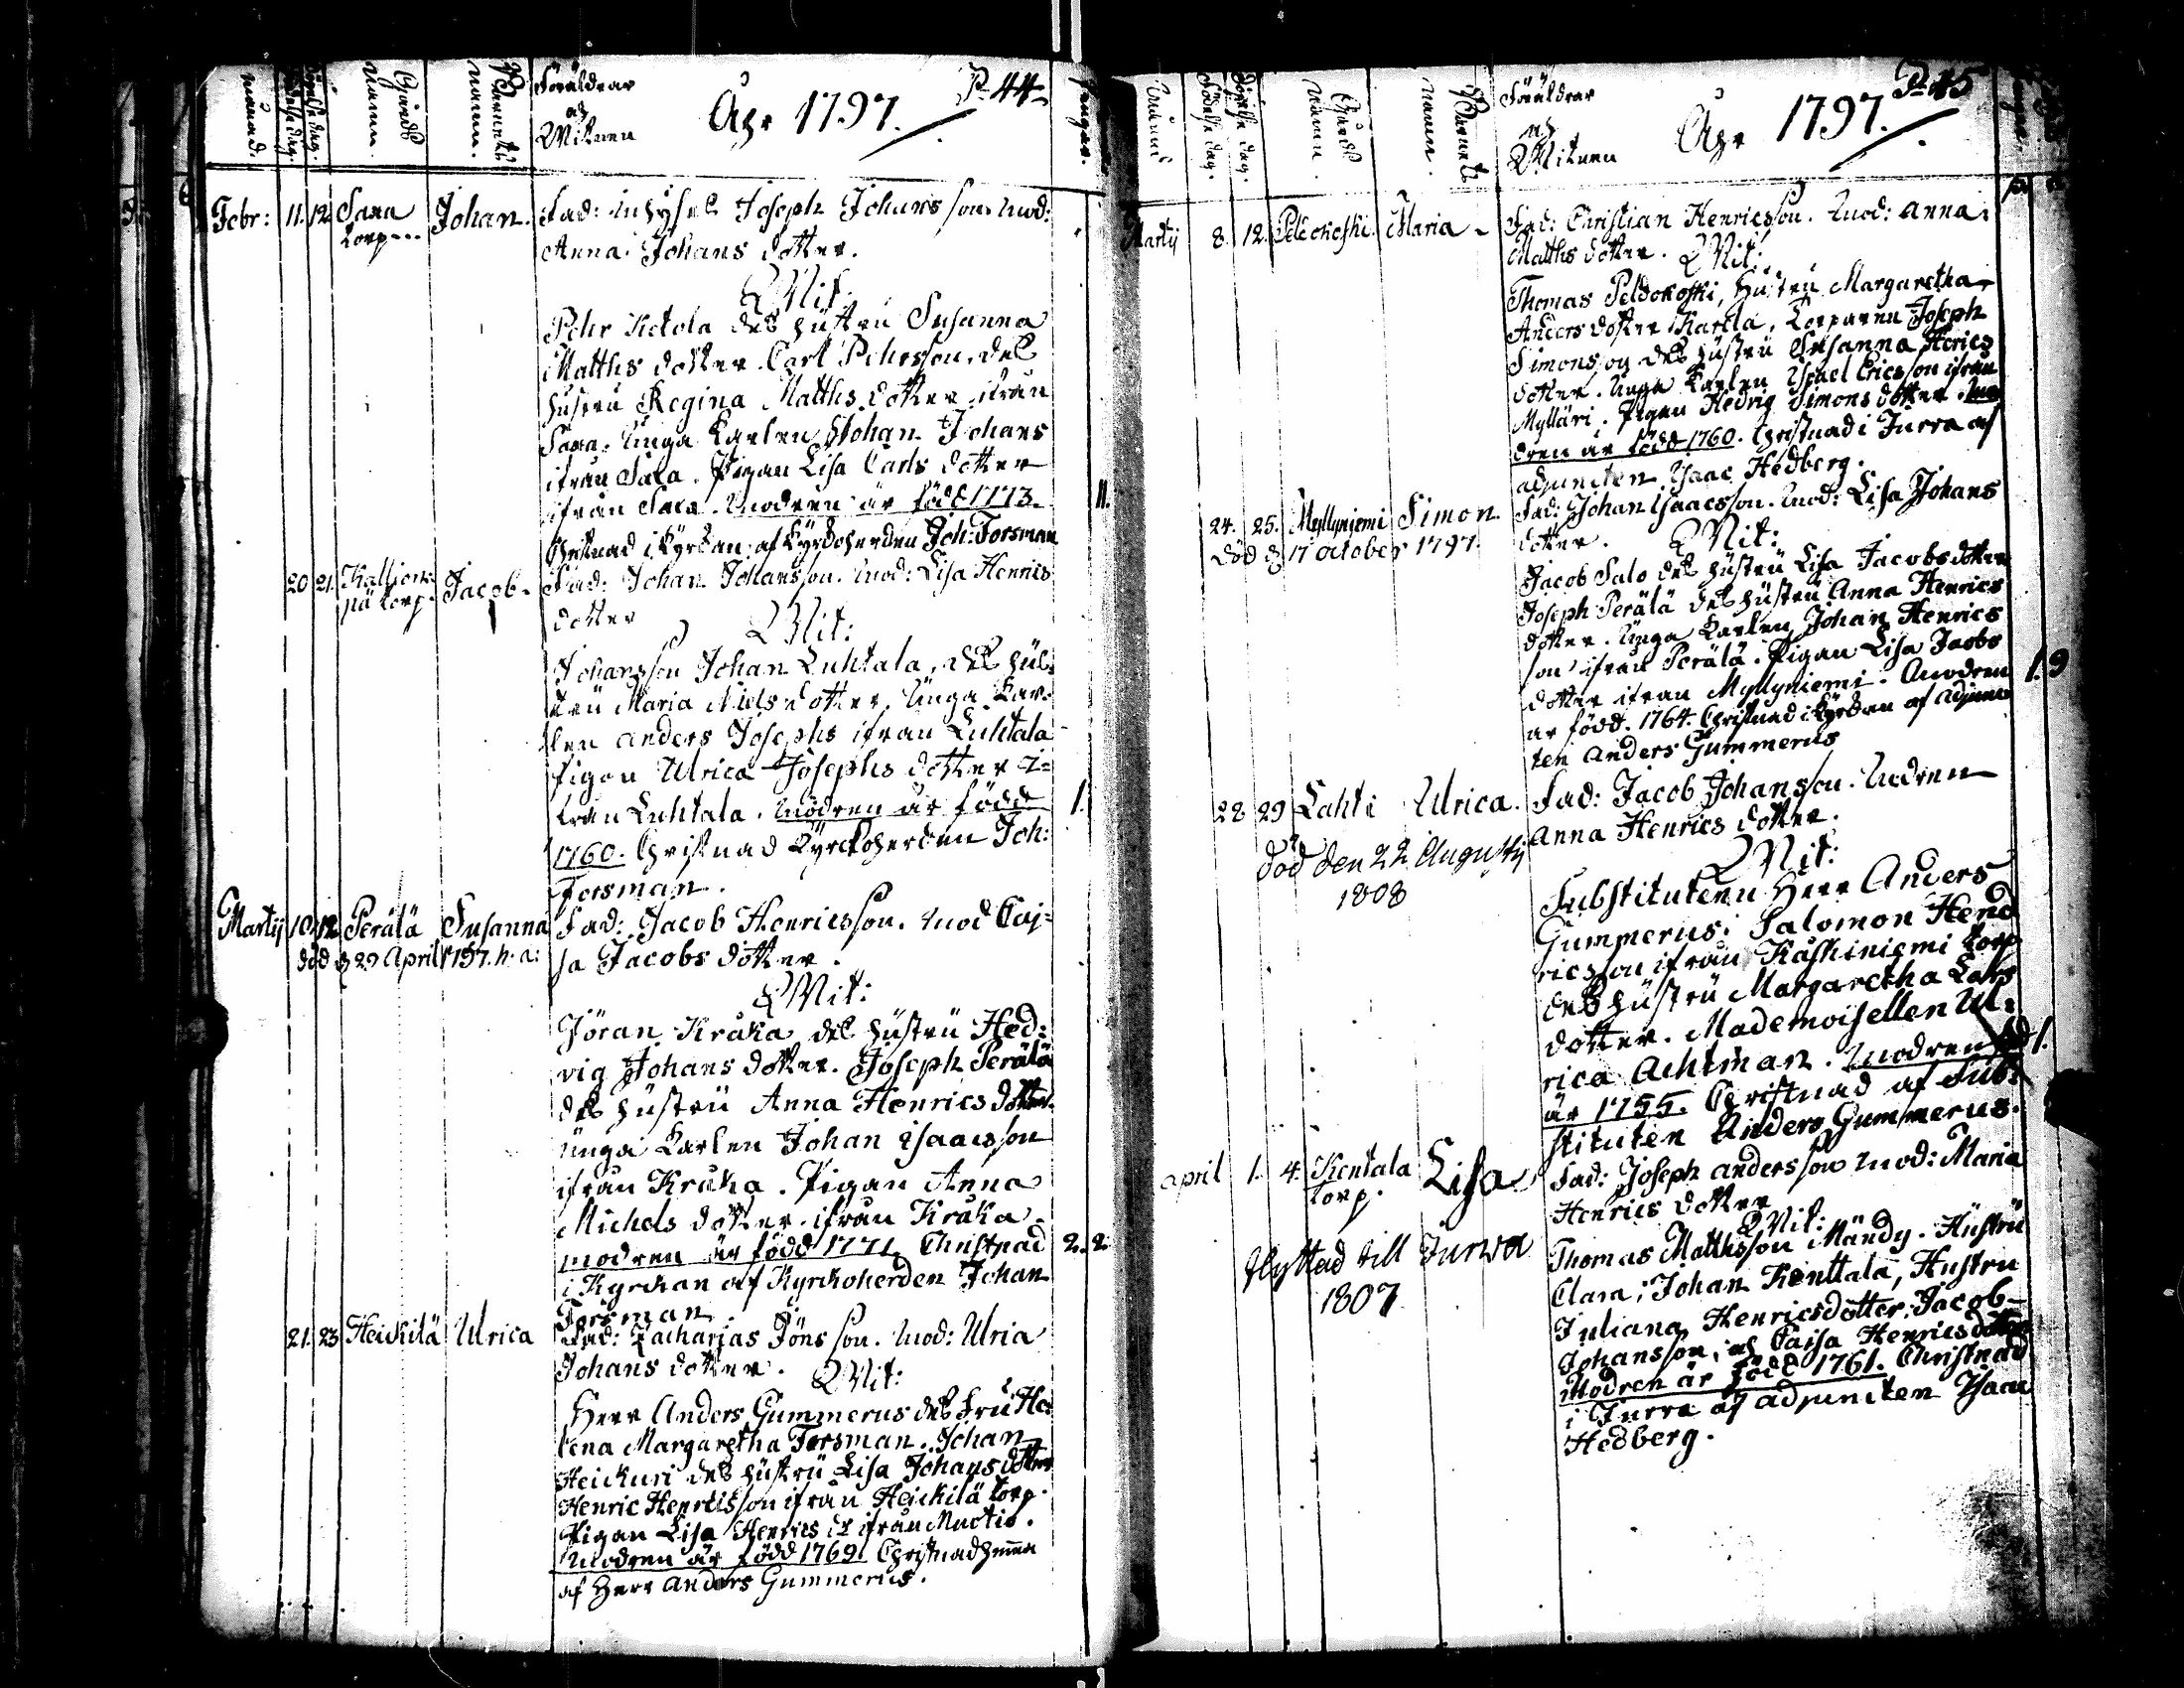 månad.
Födelse dag.
Döpelse dag.
Gårds namn.
Barnets namn.
Föräldrar
och
Witnen
Åhr 1797.
P. 44
Febr: 11. 12. Sara Johan. Fad: Inhyses Joseph Johansson. Mod:
torp Anna Johans dotter.
Wit:
Pehr Ketola des hustru Susanna
Matths dotter. Carl Pehrsson, des
hustru Regina Matths dotter ifrån
Sara. Unga Karlen Johan Johans
ifrån Sara. Pigan Lisa Carls dotter
ifrån Sara. Modren är född 1773.
Christnad i Kyrkan af Kyrkoherden Joh: Forsman
11.
20 21. Jacob. Fad: Johan Johansson. Mod: Lisa Henrics
torp. dotter
Wit:
Johansson Johan Luhtala, des hus-
tru Maria Niels dotter. Unga Kar-
len Anders Josephs ifrån Luhtala
Pigan Ulrica Josephs dotter i-
från Luhtala. Modren är född
1.
1760. Christnad Kyrckoherden Joh:
Forsman.
Martij 10. 12. Perälä Susanna Fad: Jacob Henricsson. Mod Caj-
död d 29 April 1797. h. a: sa Jacobs dotter.
Wit:
Jöran Kråka des hustru Hed-
vig Johans dotter. Joseph Perälä
des hustru Anna Henrics dotter.
Unga Karlen Johan Isaacsson
ifrån Kråka. Pigan Anna
Michels dotter ifrån Kråka.
modren är född 1771. Christnad
2. 2.
i Kyrckan af Kyrckoherden Johan
Forsman
21. 23 Heickilä Ulrica Fad: Zacharias Jönsson. Mod: Ulria
Johans dotter. Wit:
Herr Anders Gummerus des fru He-
lena Margaretha Forsman. Johan
Heickuri des hustru Lisa Johans dotter
Henric Henricsson ifrån Heickilä torp.
Pigan Lisa Henrics dr ifrån Muotio.
Modren är född 1769. Christnad hemma
af Herr Anders Gummerus.
Födelse dag.
Döpelse dag.
Gårds namn.
Barnets namn.
Föräldrar
och
Witnen
Åhr 1797.
P. 45
Martij 8. 12. Peldokoski. Maria. Fad: Christian Henricsson. Mod: Anna
Matths dotter. Wit:
Thomas Peldokoski, hustru Margaretha
Anders dotter Kartla. Torparen Joseph
Simonsson des hustru Susanna Henrics
dotter. Unga Karlen Israel Ericsson ifrån
Mylläri. Pigan Hedvig Simons dotter. Mo-
dren är född 1760. Christnad i Jurva af
adjuncten Isaac Hedberg.
24. 25. Myllyniemi Simon. Fad: Johan Isaacsson. Mod: Lisa Johans
död d 17 October 1797. dotter. Wit:
Jacob Salo des hustru Lisa Jacobs dotter
Joseph Perälä des hustru Anna Henrics
dotter. Unga Karlen Johan Henrics
son ifrån Perälä. Pigan Lisa Jacobs
dotter ifrån Myllyniemi. Modren
1. 9
är född 1764. Christnad i Kyrckan af Adjunc-
ten Anders Gummerus
28 29 Lahti Ulrica. Fad: Jacob Johansson. Modren
Anna Henrics dotter.
död den 22 Augustij
1808
Wit:
Substituten Herr Anders
Gummerus: Salomon Hend
ricsson ifrån Kaskiniemi torp
des hustru Margaretha Lars
dotter. Mademoisellen Ul-
rica Achtman. Modren född
1.
är 1755. Christnad af Sub-
stituten Anders Gummerus.
april 1. 4. Kentala Lisa Fad: Joseph andersson Mod: Maria
torp. Henrics dotter
Wit:
Thomas Matthsson Mändy. Hustru
Clara; Johan Kenttala, Hustru
flyttad till Jurva
1807
Juliana Henricsdotter. Jacob
Johansson, och Caisa Henricsdotter
Modren är född 1761. Christnad
i Jurva af adjuncten Isaac
Hedberg.